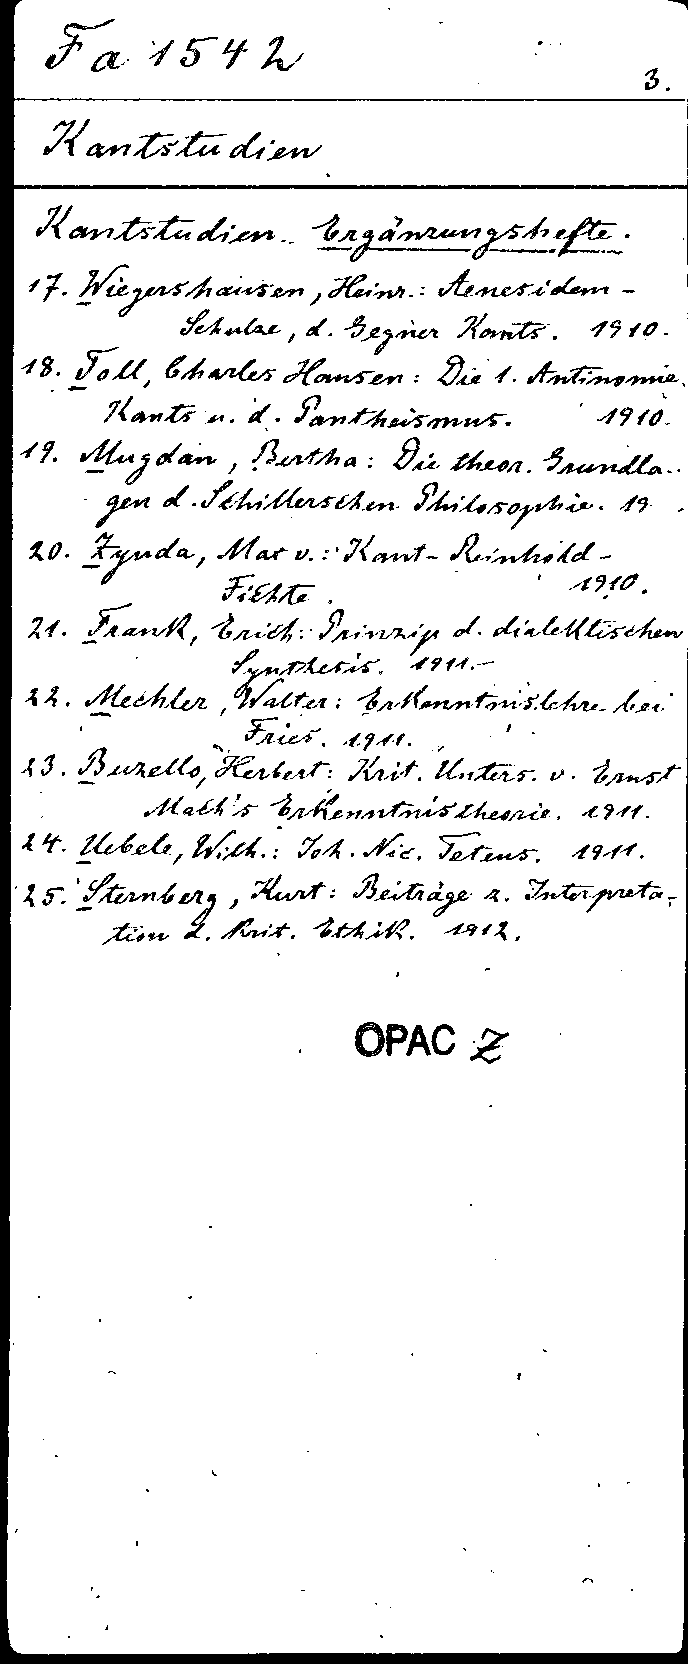 Fa 1542
3.
Kantstudien
Kantstudien. Ergänzungshefte.
17. Wiegershausen, Heinr.: Aenesidem-
Schulze, d. Gegner Kants. 1910.
18. Toll, Charles Hansen: Die 1. Antinomie
Kants u. d. Pantheismus. 1910.
19. Mugdan, Bertha: Die theor. Grundla-
gen d. Schillerschen Philosophie. 19 .
20. Zynda, Max v.: Kant-Reinhold-
Fichte. 1910.
21. Frank, Erich: Prinzip d. dialektischen
Synthesis. 1911.-
22. Mechler, Walter: Erkenntnislehre bei
Fries. 1911.
23. Buzello, Herbert: Krit. Unters. v. Ernst
Mach's Erkenntnistheorie. 1911.
24. Uebele, Wilh.: Joh. Nic. Tetens. 1911.
25. Sternberg, Kurt: Beiträge z. Interpreta-
tion d. krit. Ethik. 1912.
OPAC Z